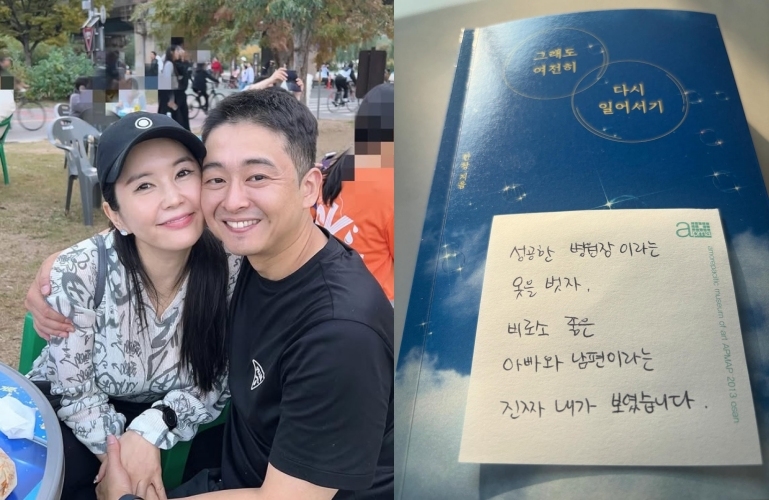 그래도
여전히
다시
일어서기
성공한 병원장이라는
옷을 벗자.
비로소 좋은
아빠와 남편이라는
진짜 내가 보였습니다.
amorepacific museum of art APMAP 2013 osan